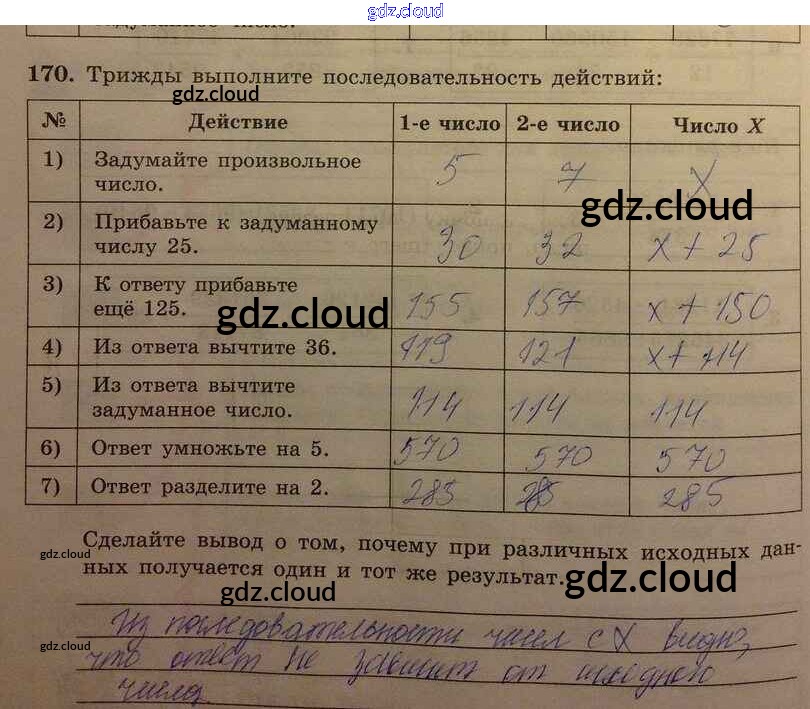 gdz.cloud
170. Трижды выполните последовательность действий:
gdz.cloud
№ Действие 1-е число 2-е число Число X
1) Задумайте произвольное 5 7 X
число.
gdz.cloud
2) Прибавьте к задуманному
числу 25. 30 32 x + 25
3) К ответу прибавьте
ещё 125. 155 157 x + 150
gdz.cloud
4) Из ответа вычтите 36. 119 121 x + 114
5) Из ответа вычтите
задуманное число. 114 114 114
6) Ответ умножьте на 5. 570 570 570
7) Ответ разделите на 2. 285 285 285
Сделайте вывод о том, почему при различных исходных дан-
gdz.cloud
ных получается один и тот же результат.
gdz.cloud
gdz.cloud
Из последовательности чисел с X видно,
gdz.cloud
что ответ не зависит от исходного
числа